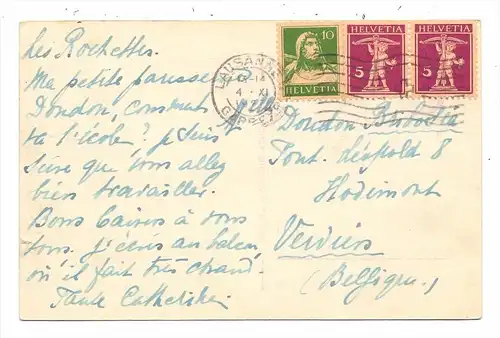 Les Rochettes.
Ma petite paresseuse
Doudou, comment
va l'école? je suis
sûre que vous allez
bien travailler.
Bons baisers à vous
tous. j'écris au balcon,
où il fait très chaud.
Tante Catherine
LAUSANNE
4. XI
GARE
10
HELVETIA
HELVETIA
5
HELVETIA
5
Mlle
Doudou
Pont. Léopold 8
Hodimont
Verviers
(Belgique)